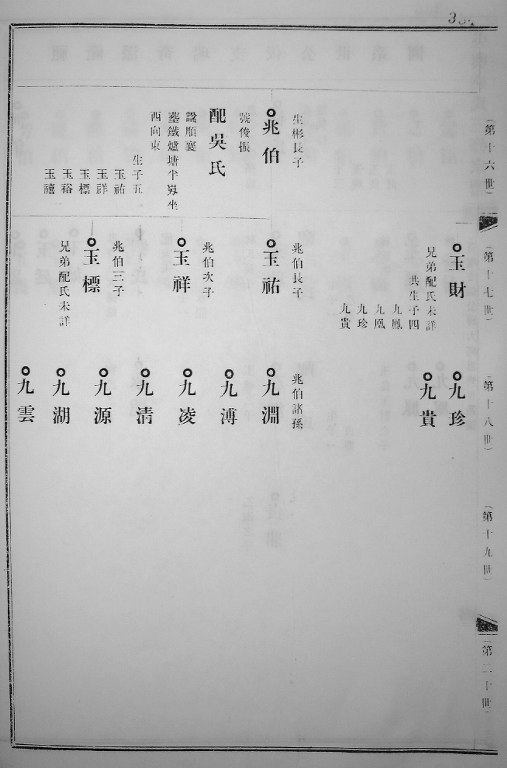 (第十六世)
(第十七世)
(第十八世)
(第十九世)
(第二十世)
生彬長子
兆伯
號俊振
配吳氏
諡順襄
塟鐵爐塘半㞳坐
西向東
生子五
玉祐
玉祥
玉標
玉裕
玉禧
玉財
兄弟配氏未詳
共生子四
九鳳
九凰
九珍
九貴
兆伯長子
玉祐
兆伯次子
玉祥
兆伯三子
玉標
兄弟配氏未詳
九珍
九貴
兆伯諸孫
九淵
九溥
九凌
九清
九源
九湖
九雲